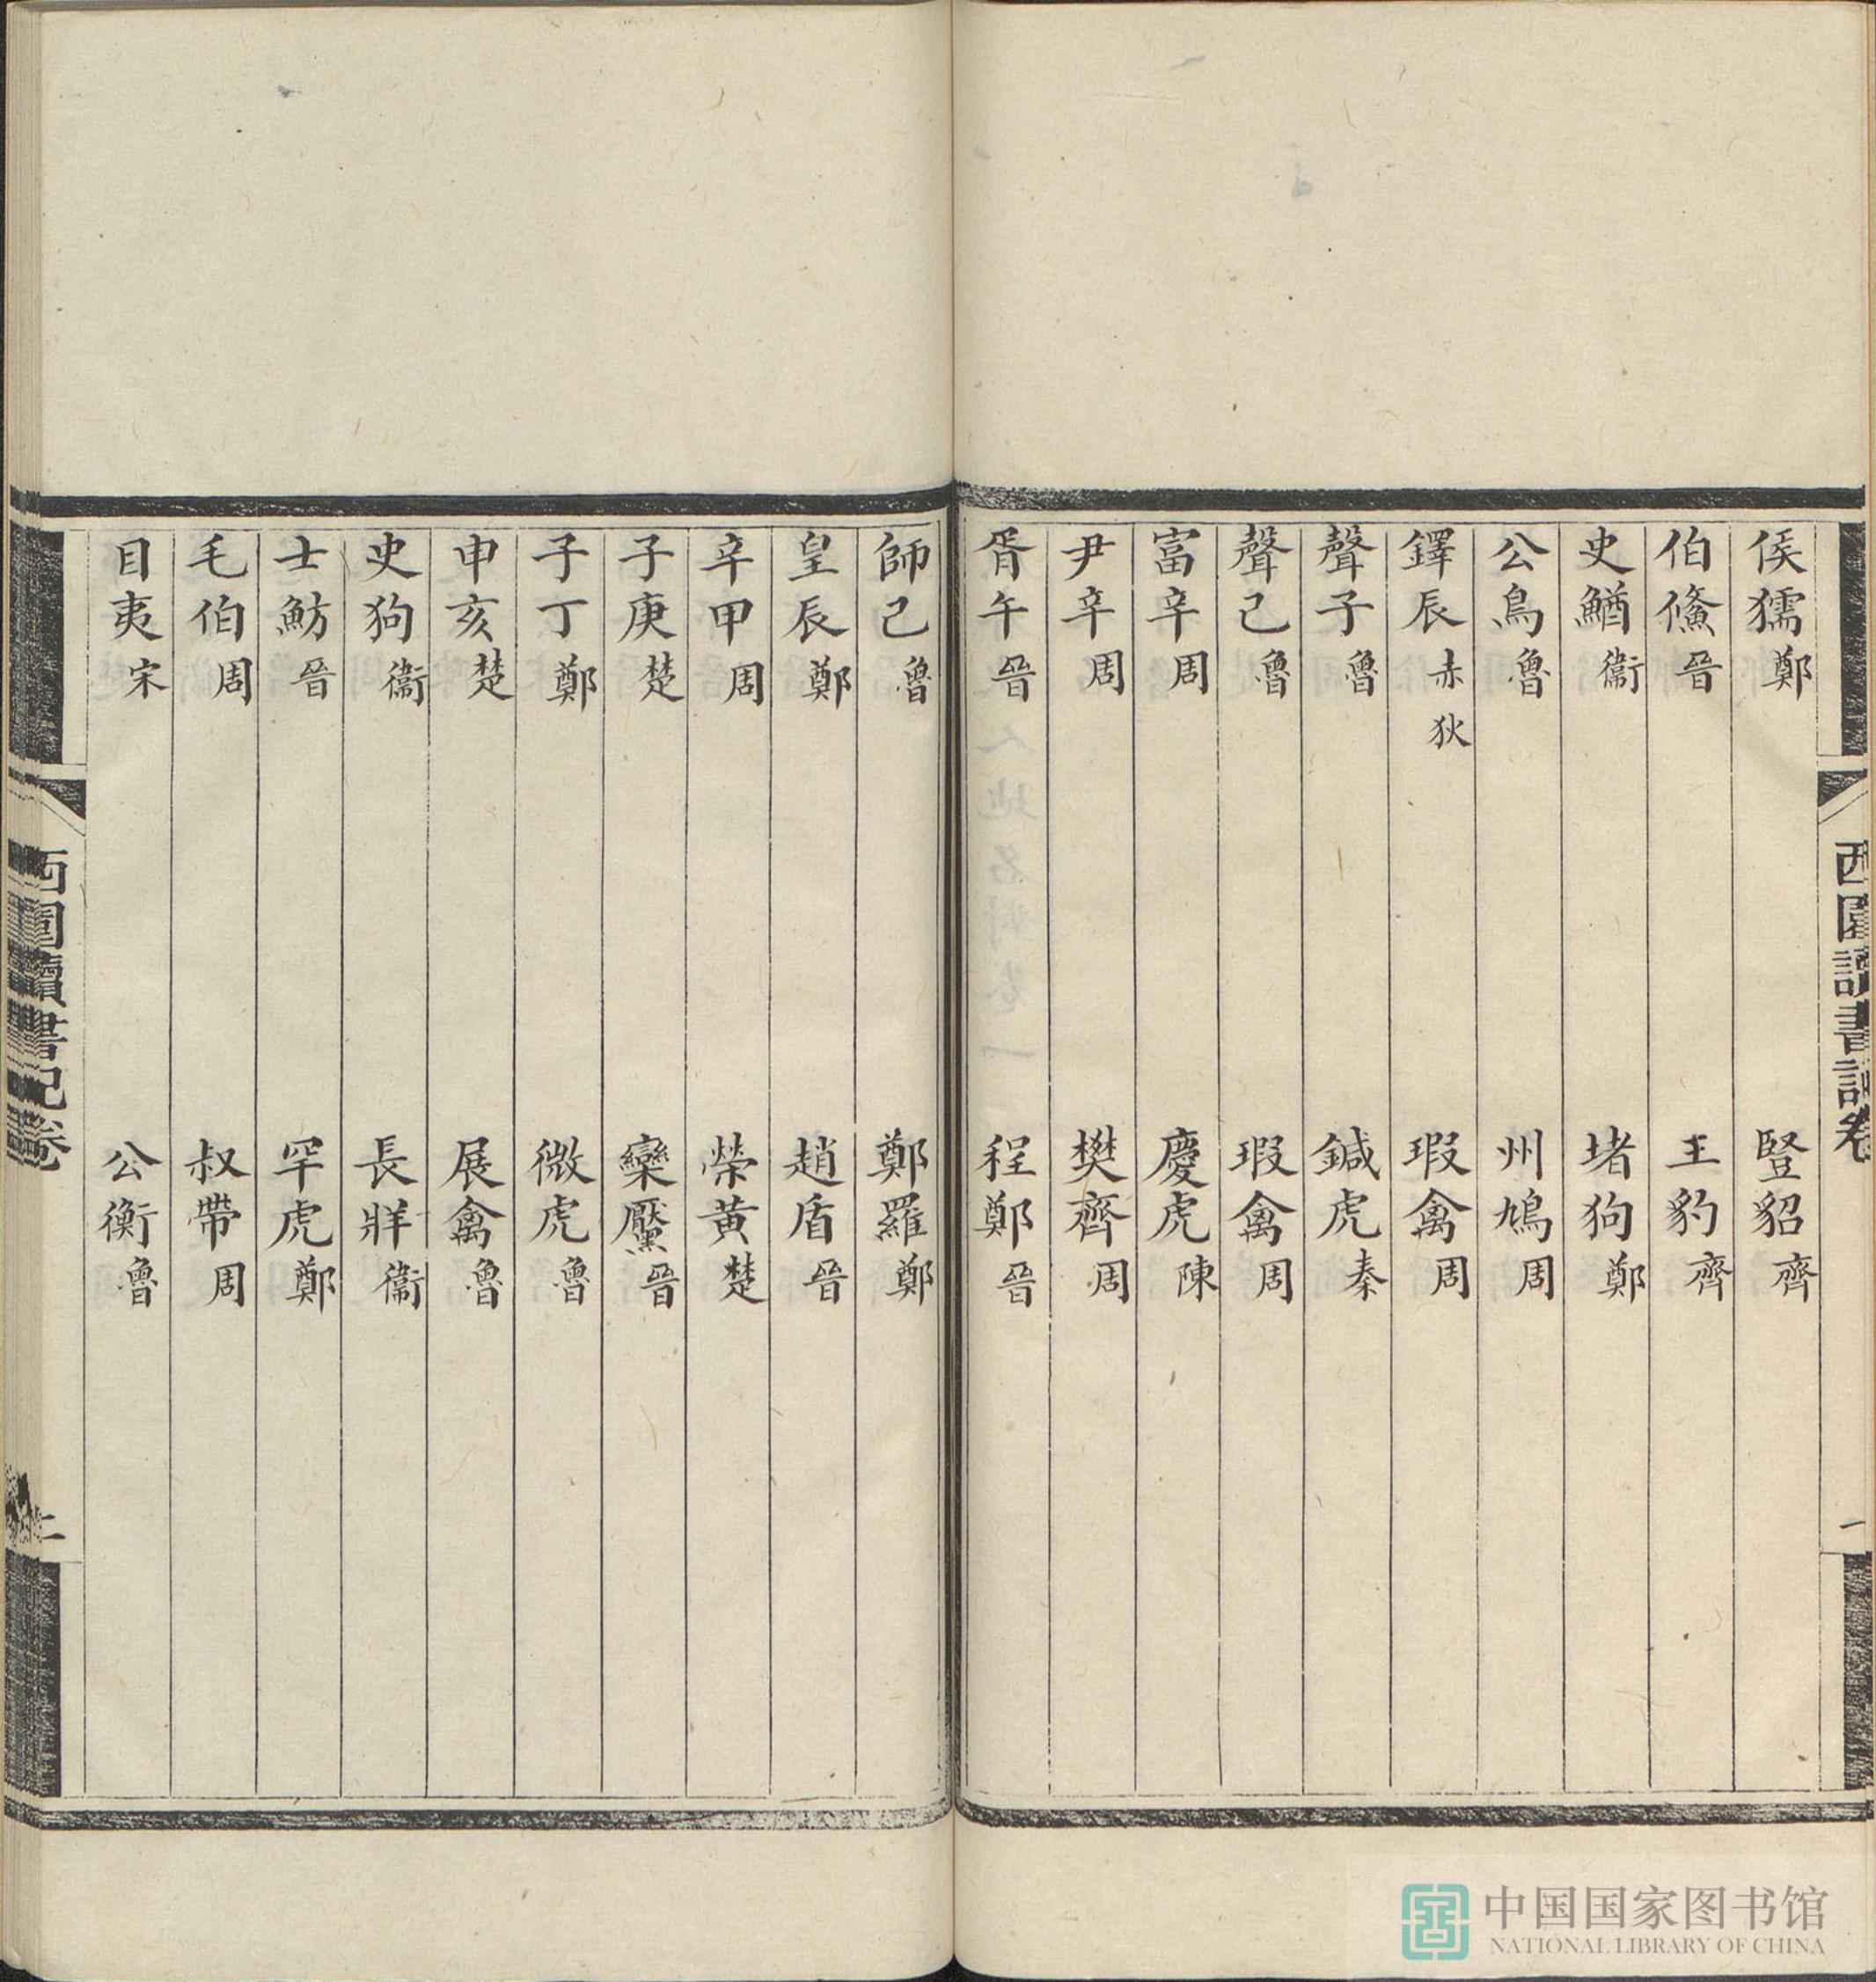 侯獳鄭 豎貂齊
伯鯈晉 王豹齊
史鰌衞 堵狗鄭
公鳥魯 州鳩周
鐸辰赤狄 瑕禽周
聲子魯 鍼虎秦
聲己魯 瑕禽周
富辛周 慶虎陳
尹辛周 樊齊周
胥午晉 程鄭晉
西圃讀書記卷
一
師己魯 鄭羅鄭
皇辰鄭 趙盾晉
辛甲周 榮黃楚
子庚楚 欒黶晉
子丁鄭 微虎魯
申亥楚 展禽魯
史狗衞 長牂衞
士魴晉 罕虎鄭
毛伯周 叔帶周
目夷宋 公衡魯
西圃讀書記卷
二
中国国家图书馆
NATIONAL LIBRARY OF CHINA